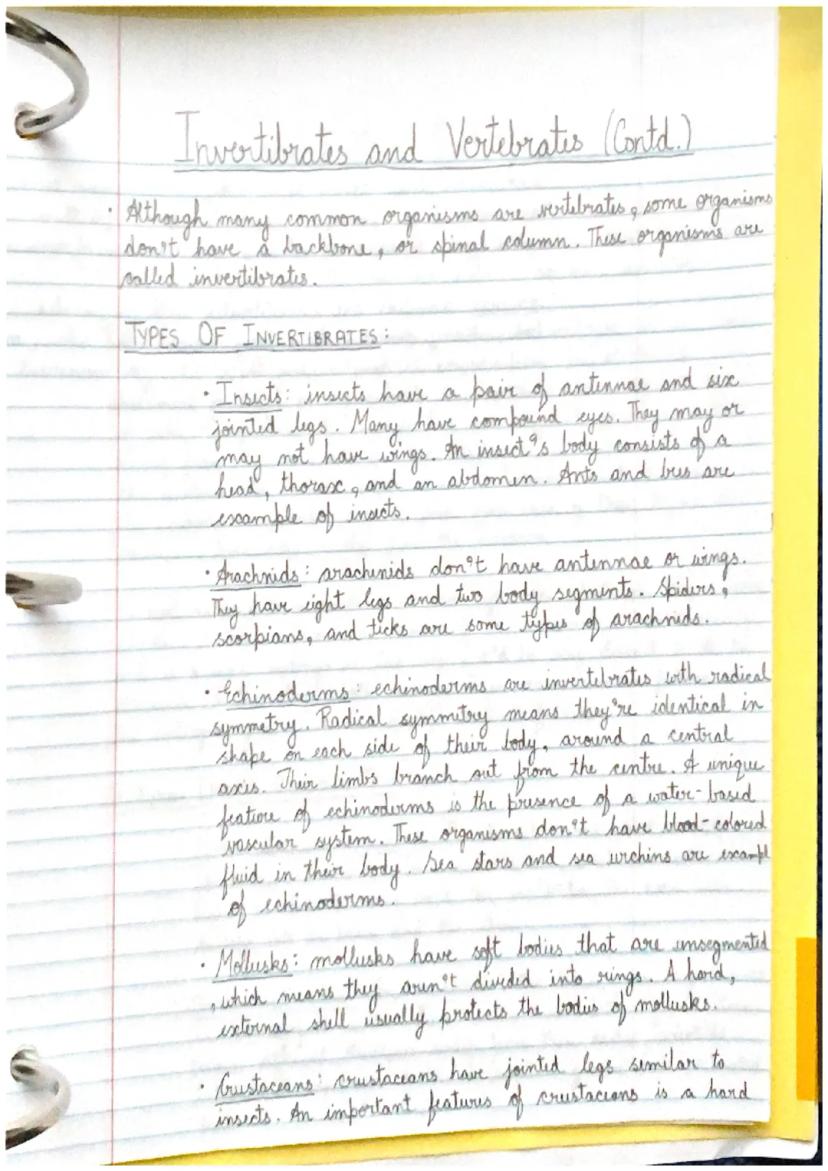 Invertibrates and Vertebrates (Contd.)
· Although many common organisms are vertebrates, some organisms
don't have a backbone, or spinal column. These organisms are
called invertibrates.
TYPES OF INVERTIBRATES:
· Insects: insects have a pair of antennae and six
jointed legs. Many have compound eyes. They may or
may not have wings. An insect's body consists of a
head, thorax, and an abdomen. Ants and bees are
example of insects.
· Arachnids: arachinids don't have antennae or wings.
They have eight legs and two body segments. Spiders,
scorpians, and ticks are some types of arachnids.
· Echinoderms: echinoderms are invertibrates with radical
symmetry. Radical symmetry means they're identical in
shape on each side of their body, around a central
axis. Their limbs branch out from the centre. A unique
feature of echinoderms is the presence of a water-based
vascular system. These organisms don't have blood-colored
fluid in their body. Sea stars and sea urchins are exampl
of echinoderms.
· Mollusks: mollusks have soft bodies that are unsegmented
, which means they aren't divided into rings. A hard,
external shell usually protects the bodies of mollusks.
· Crustaceans: crustaceans have jointed legs similar to
insects. An important features of crustaceans is a hard